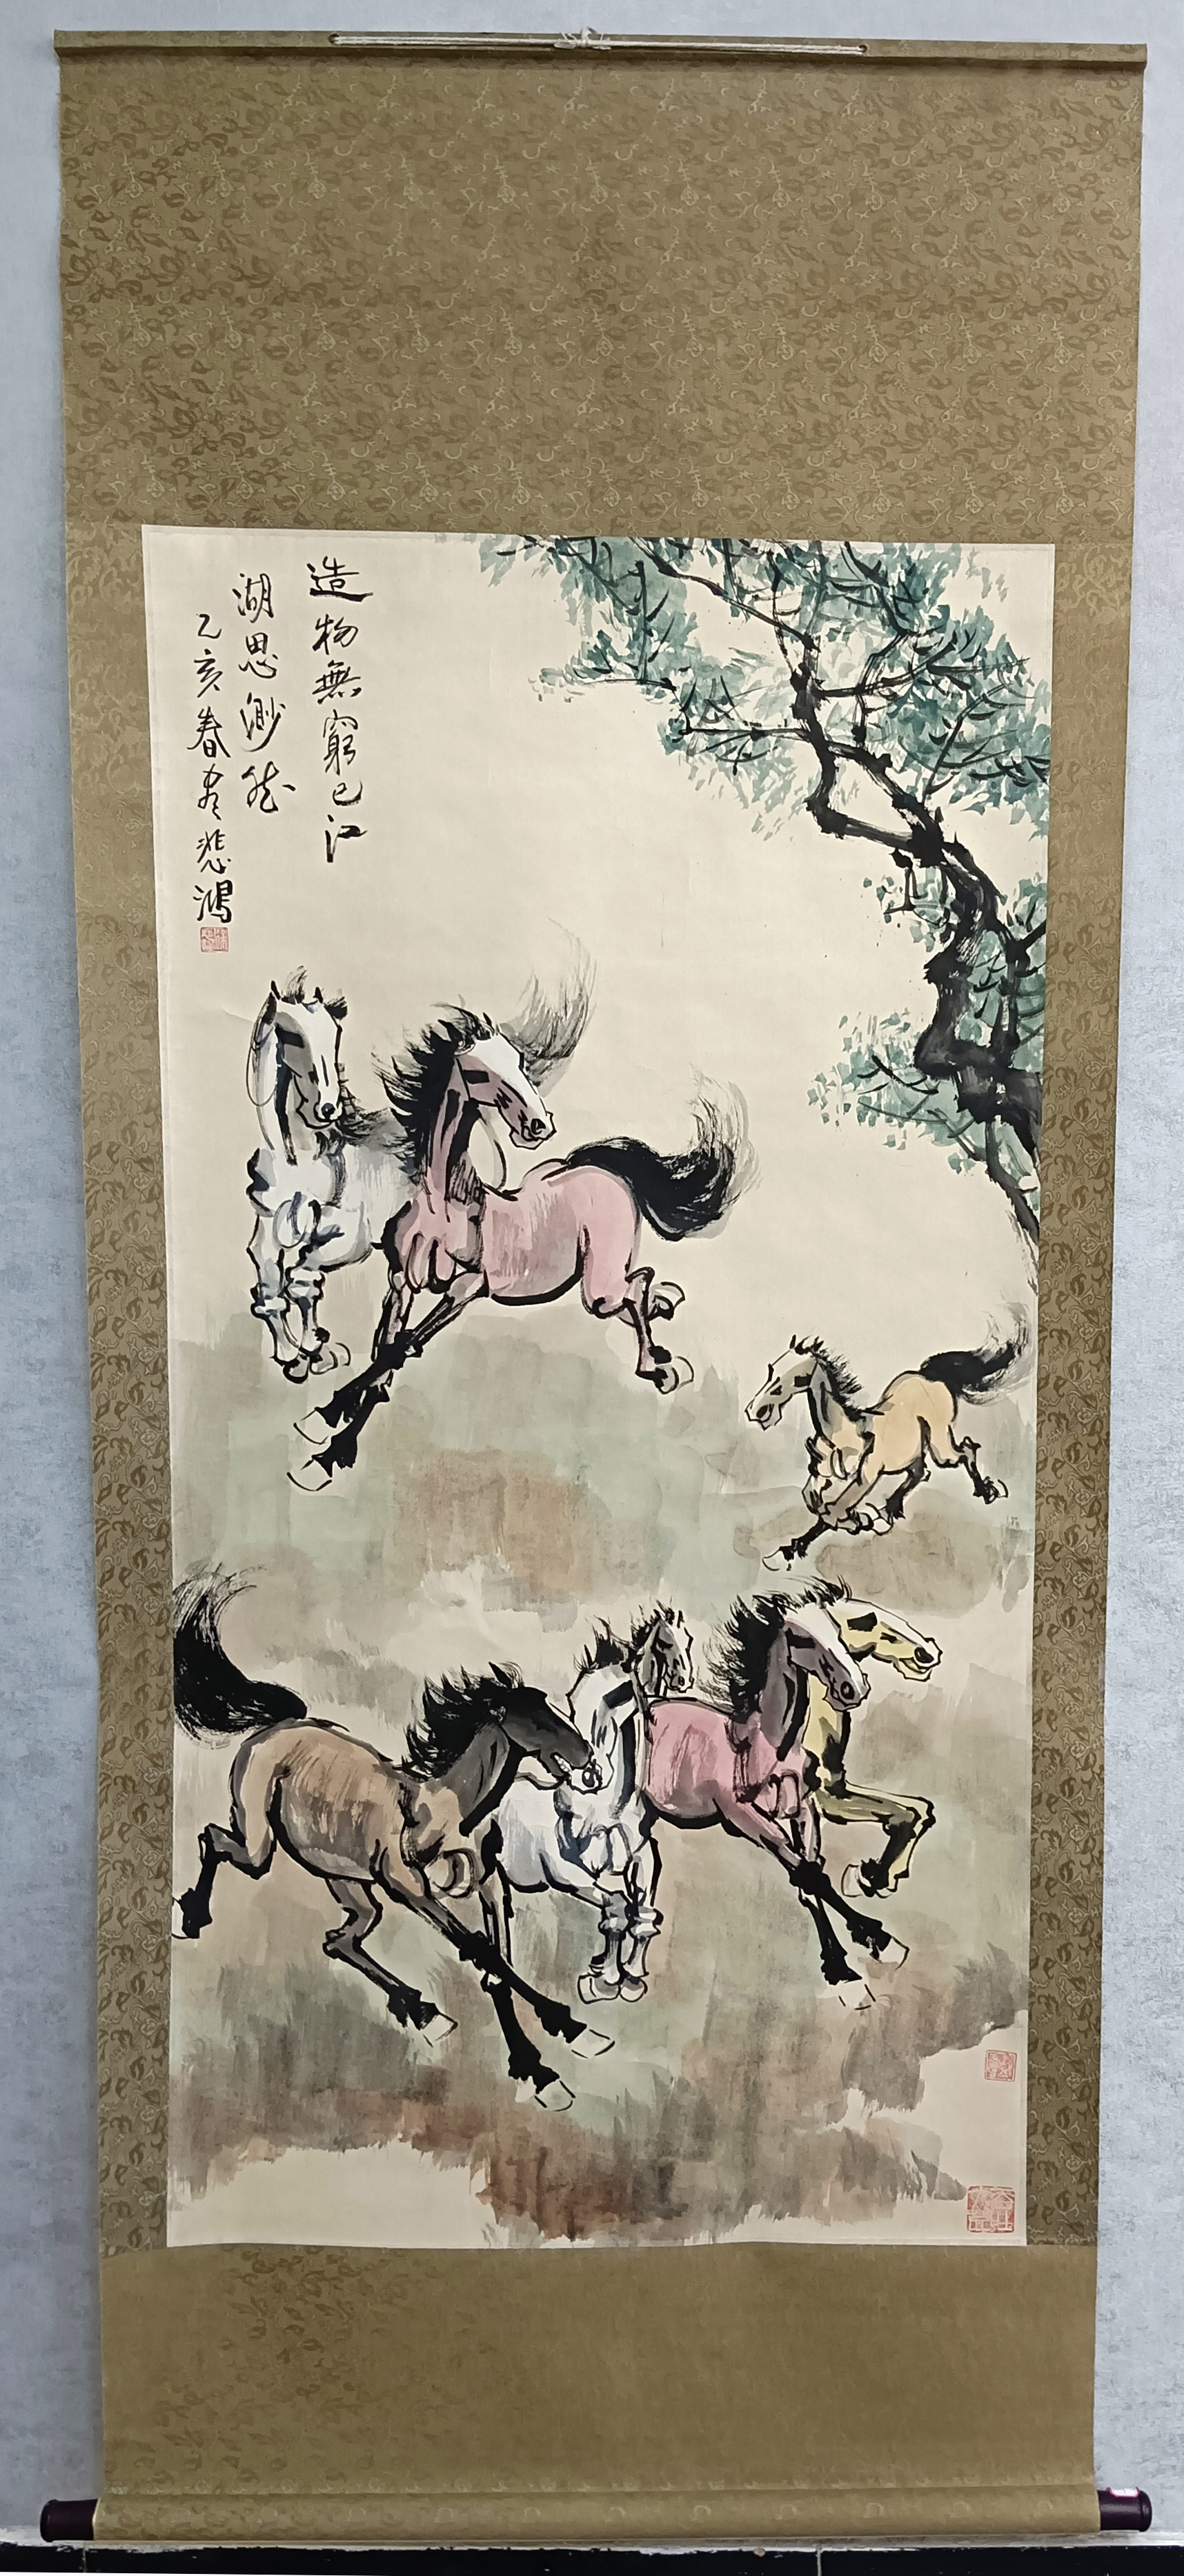 造物無窮已江
湖思渺然
乙亥春暮悲鴻